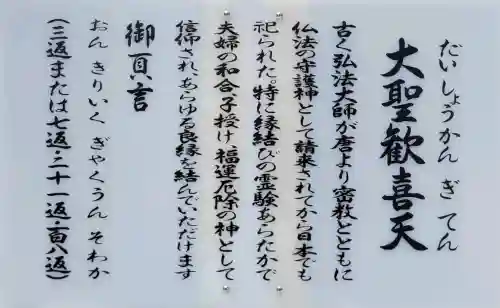 だいしょうかんぎてん
大聖歓喜天
古く弘法大師が唐より密教とともに
仏法の守護神として請来されてから日本でも
祀られた。特に縁結びの霊験あらたかで
夫婦の和合、子授け、福運厄除の神として
信仰され、あらゆる良縁を結んでいただけます
御真言
おん きりいく ぎゃくうん そわか
(三返または七返・二十一返・百八返)